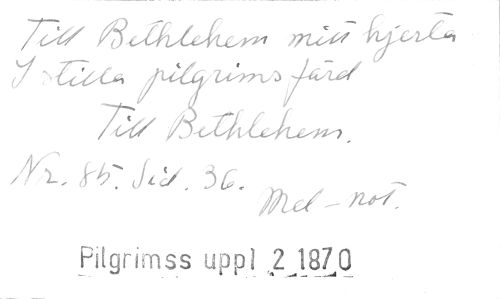 Till Bethlehem mitt hjerta
I stilla pilgrimsfärd
Till Bethlehem.
Nr. 85. Sid. 36.
Mel-not.
Pilgrimss uppl 2 1870